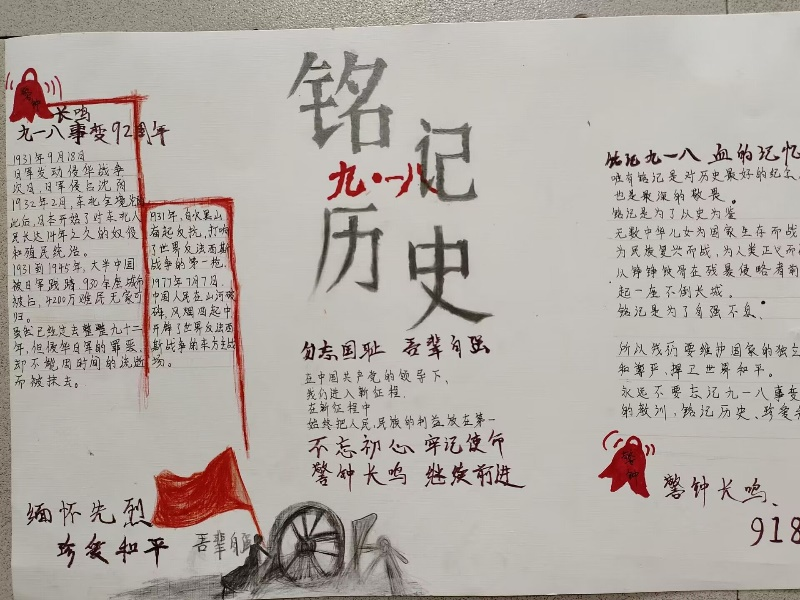 警钟
长鸣
九一八事变92周年
1931年9月18日
日军发动侵华战争
次日,日军侵占沈阳
1932年2月,东北全境沦陷
此后,日本开始了对东北人
民长达14年之久的奴役
和殖民统治。
1931到1945年,大半中国
被日军践踏,930余座城市
被占,4200万难民无家可
归。
虽然已经过去整整九十二
年,但侵华日军的罪恶
却不能因时间的流逝
而被抹去。
1931年,白水黑山
奋起反抗,打响
了世界反法西斯
战争的第一枪
1977年7月7日,
中国人民在山河破
碎,风烟四起中
开辟了世界反法西
斯战争的东方主战
场。
缅怀先烈
珍爱和平
吾辈自强
铭记
九·一八
历史
勿忘国耻 吾辈自强
在中国共产党的领导下,
我们进入新征程,
在新征程中
始终把人民,民族的利益放在第一
不忘初心 牢记使命
警钟长鸣 继续前进
铭记九一八 血的记忆
唯有铭记是对历史最好的纪念
也是最深的敬畏。
铭记是为了以史为鉴
无数中华儿女为国家生存而战
为民族复兴而战,为人类正义而
从铮铮铁骨在残暴侵略者前
起一座不倒长城。
铭记是为了自强不息、
所以我们要维护国家的独立
和尊严,捍卫世界和平。
永远不要忘记九一八事变
的教训,铭记历史、珍爱
警钟
警钟长鸣、
918